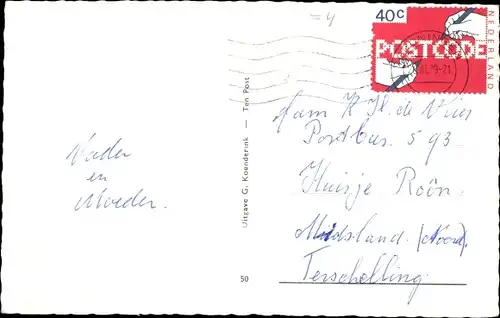 = 4
40c
NEDERLAND
POSTCODE
Vader
en
Moeder.
Uitgave G. Koenderink — Ten Post
50
Fam K. Th. de Vries
Postbus. 593
Huisje Roôn.
Midsland. (Noord)
Terschelling